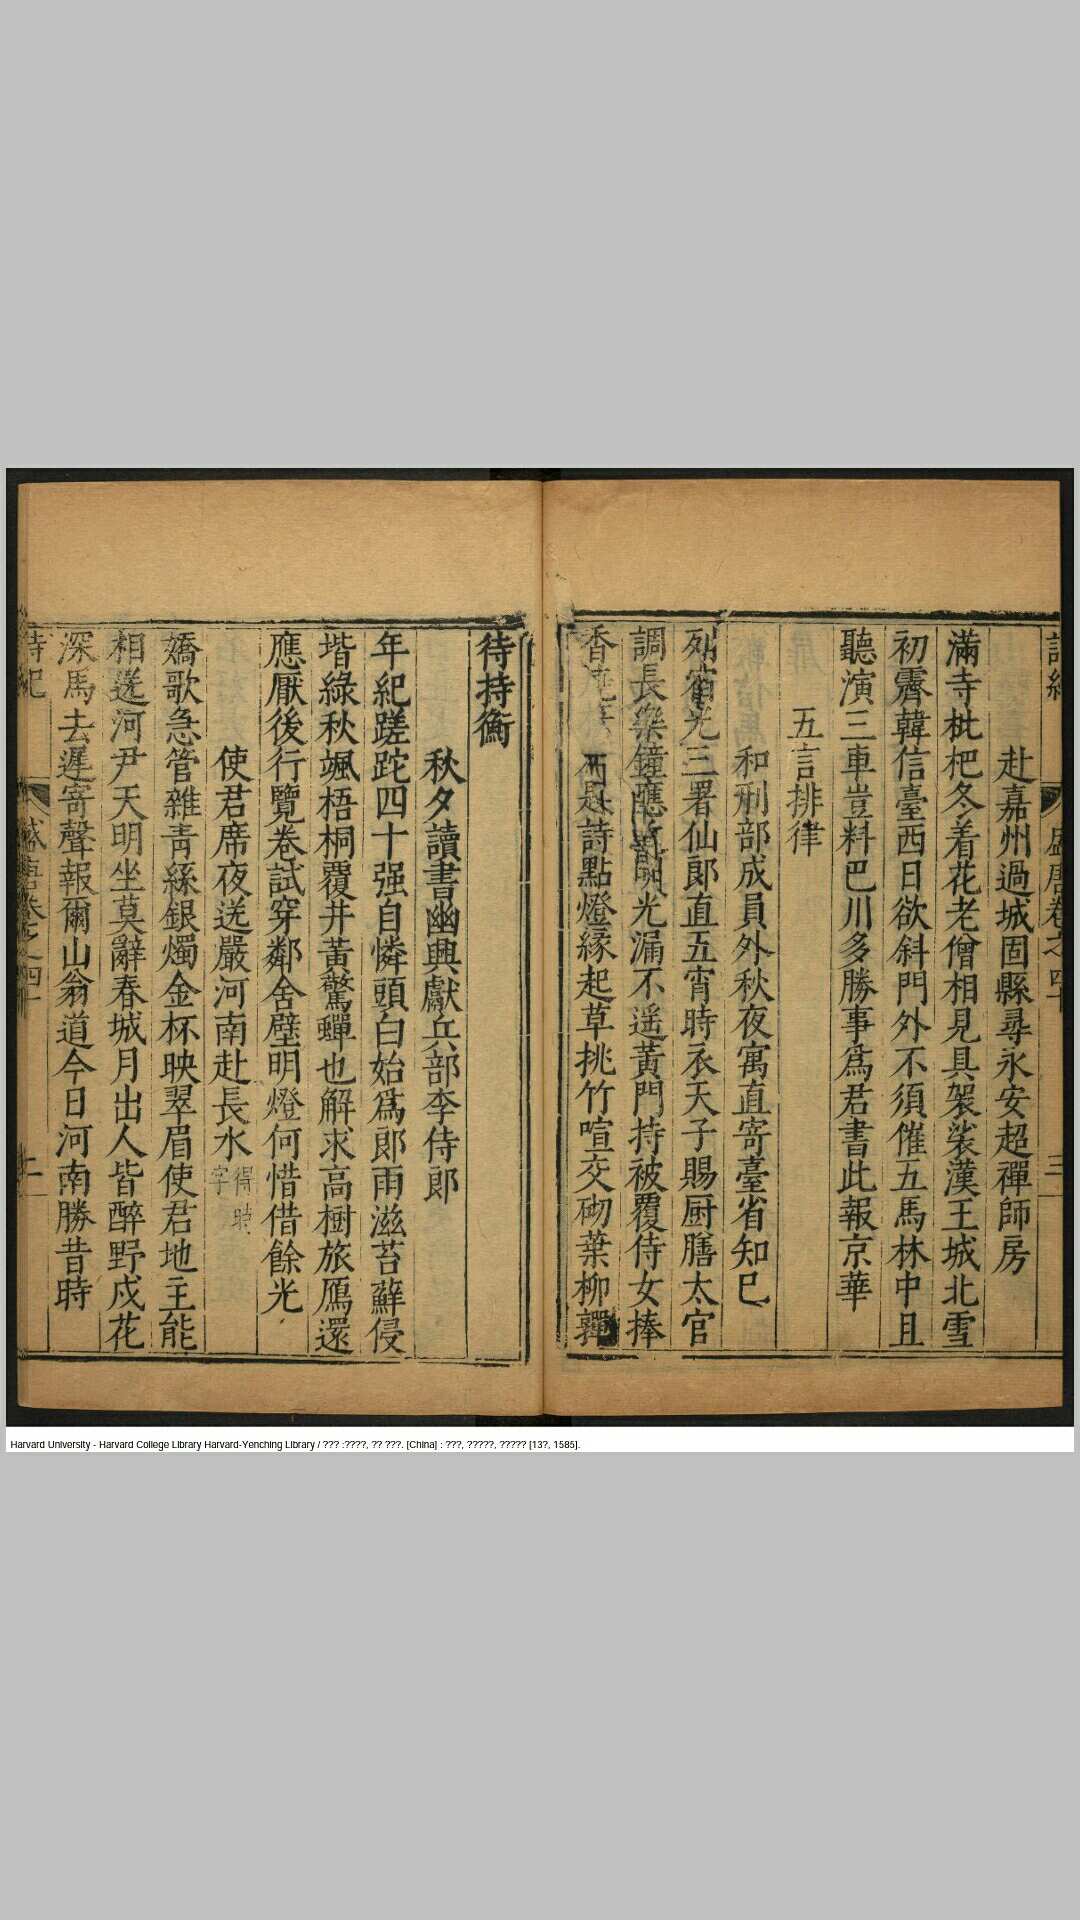 赴嘉州過城固縣尋永安超禪師房
滿寺枇杷冬着花老僧相見具袈裟漢王城北雪
初霽韓信臺西日欲斜門外不須催五馬林中且
聽演三車豈料巴川多勝事爲君書此報京華
五言排律
和刑部成員外秋夜寓直寄臺省知巳
列宿光三署仙郎直五宵時衣天子賜厨膳太官
調長樂鐘應近明光漏不遥黃門持被覆侍女捧
香燒 詩點燈緣起草挑竹喧交砌葉柳嚲
待持衡
秋夕讀書幽興獻兵部李侍郎
年紀蹉跎四十强自憐頭白始爲郎雨滋苔蘚侵
堦綠秋颯梧桐覆井黃驚蟬也解求高樹旅鴈還
應厭後行覽卷試穿鄰舍壁明燈何惜借餘光
使君席夜送嚴河南赴長水 得時字
嬌歌急管雜靑絲銀燭金杯映翠眉使君地主能
相送河尹天明坐莫辭春城月出人皆醉野戍花
深馬去遲寄聲報爾山翁道今日河南勝昔時
詩紀 盛唐卷之四十
Harvard University - Harvard College Library Harvard-Yenching Library / ??? :????, ?? ???. [China] : ???, ?????, ????? [13?, 1585].